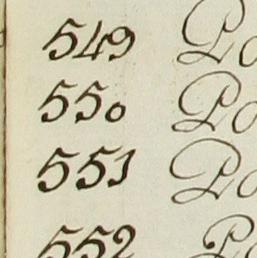 549 Po
550 Po
551 Po
552 Po